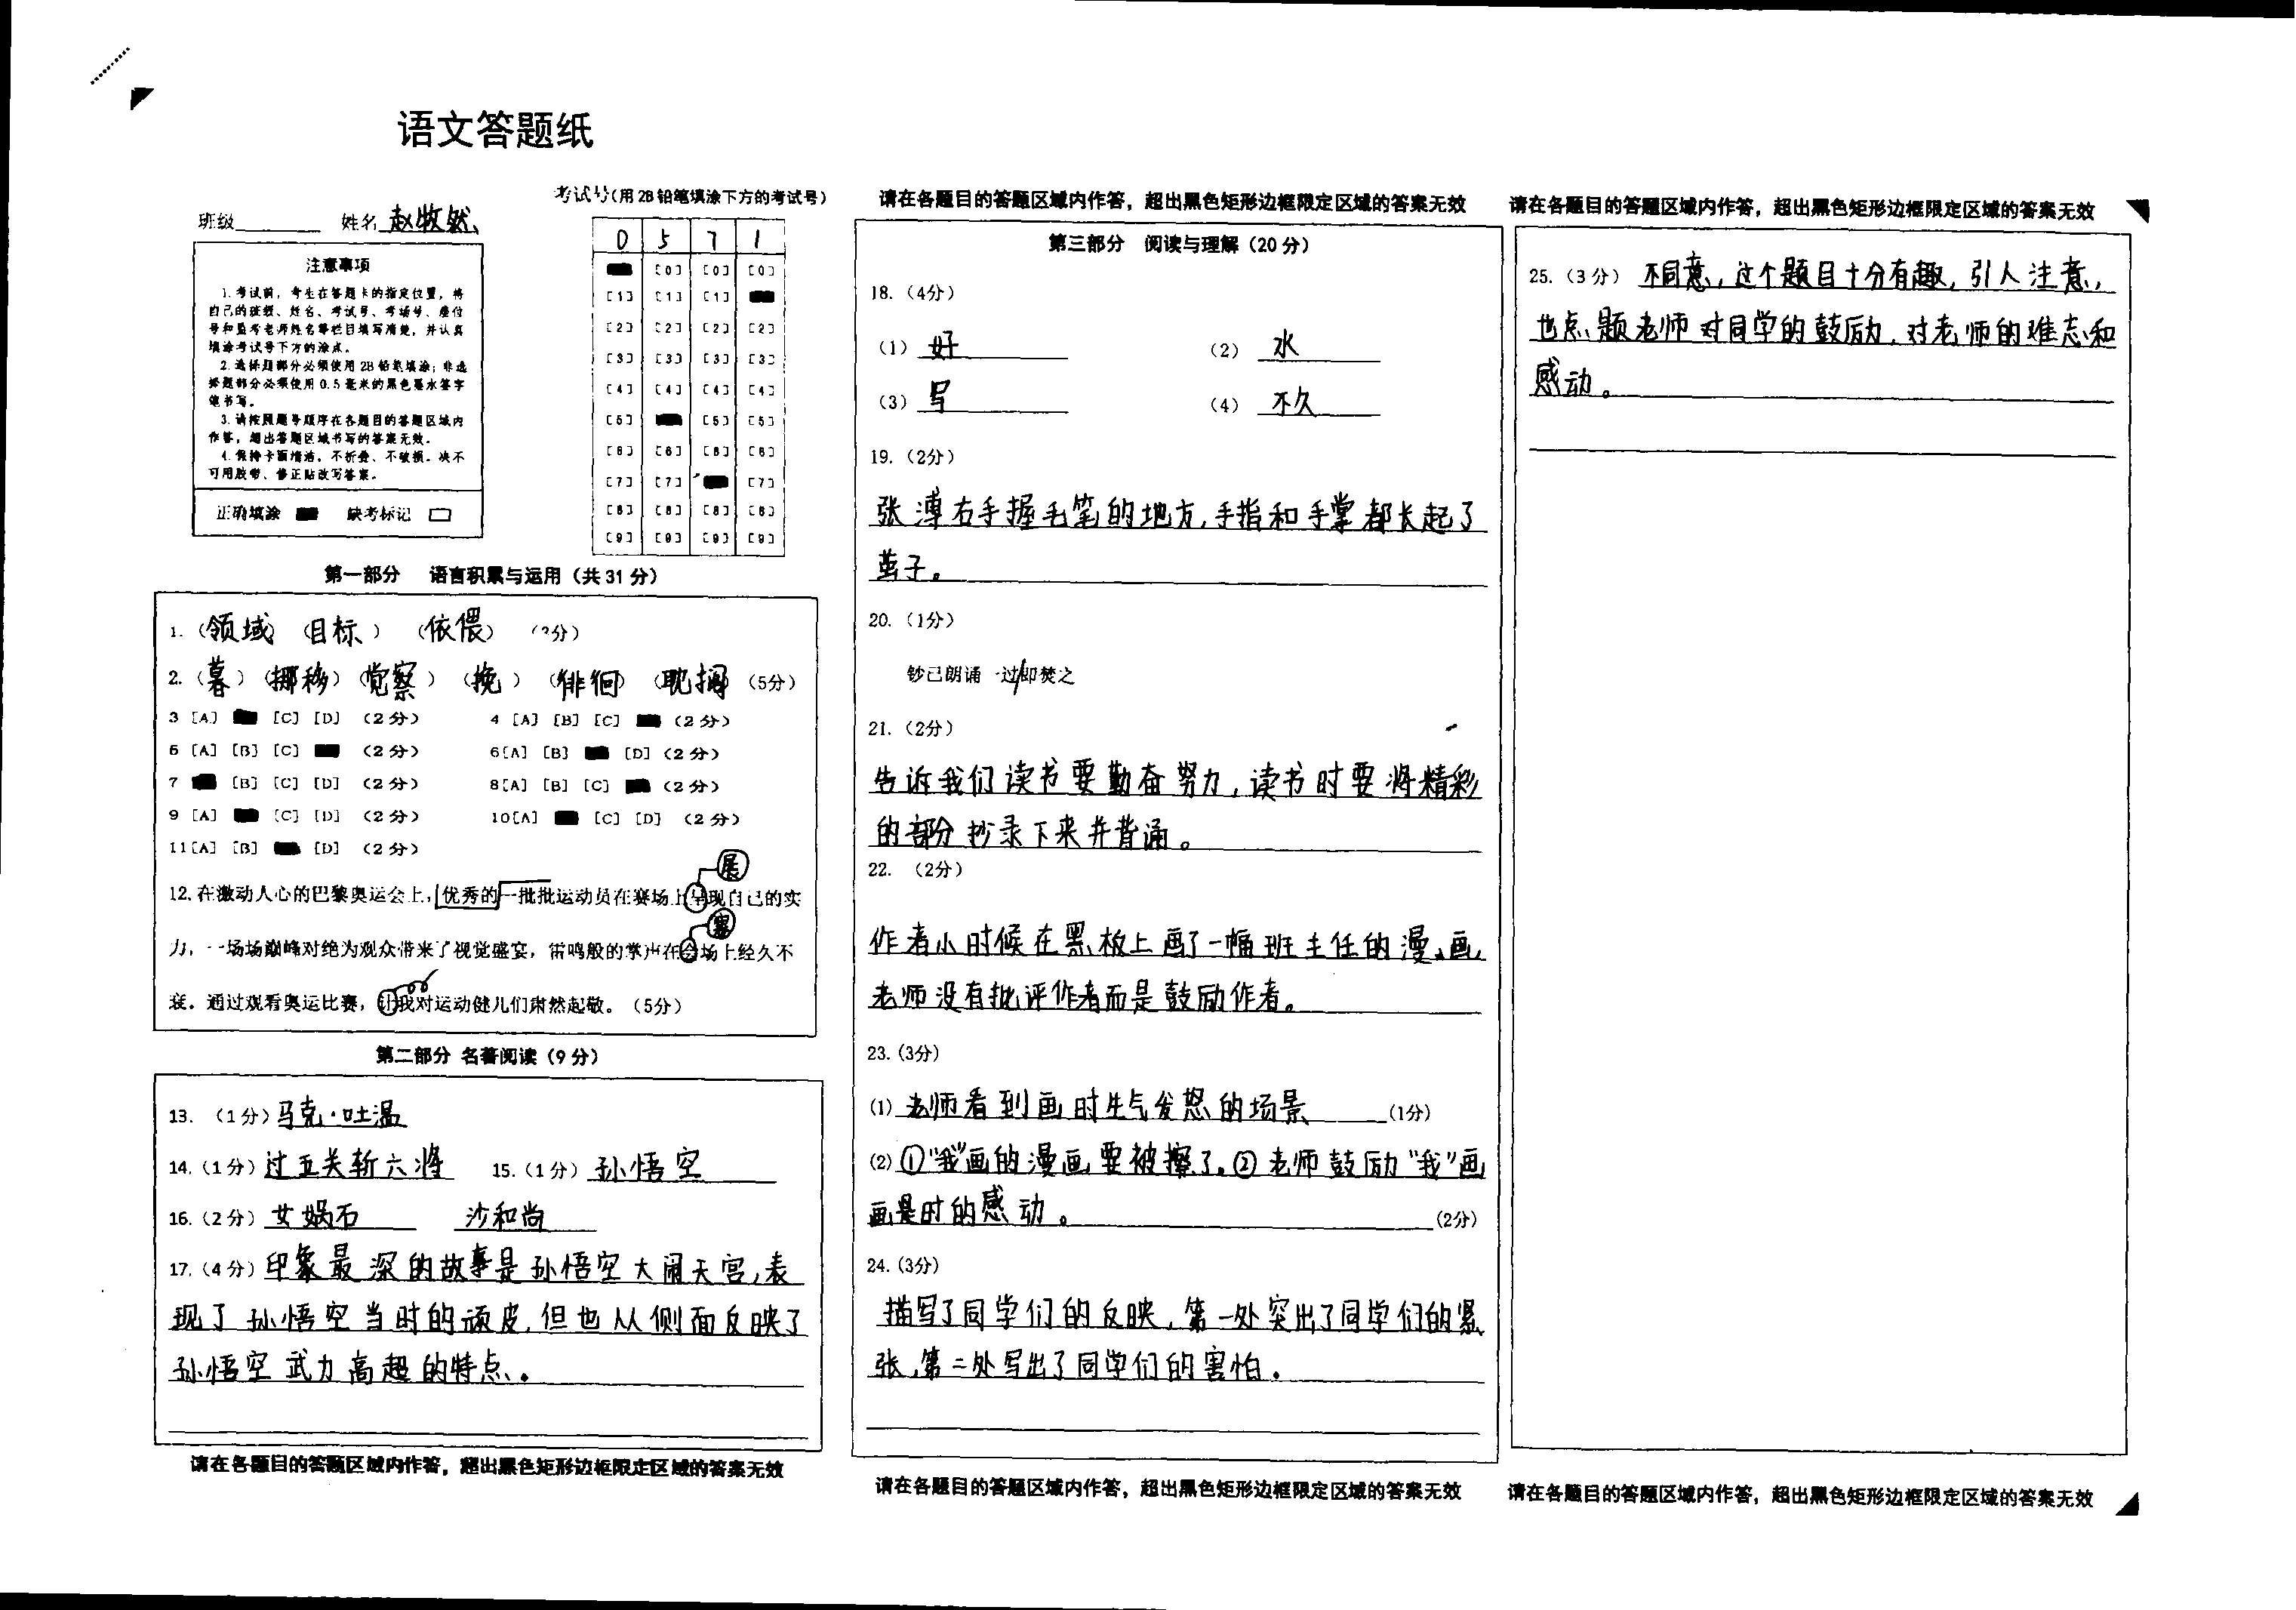 语文答题纸
班级 姓名 赵牧然
考试号(用 2B 铅笔填涂下方的考试号)
0 5 7 1
[0] [0] [0]
[1] [1] [1]
[2] [2] [2] [2]
[3] [3] [3] [3]
[4] [4] [4] [4]
[5] [5] [5]
[6] [6] [6] [6]
[7] [7] [7]
[8] [8] [8] [8]
[9] [9] [9] [9]
注意事项
1.考试前,考生在答题卡的指定位置,将
自己的班级、姓名、考试号、考场号、座位
号和监考老师姓名等栏目填写清楚,并认真
填涂考试号下方的涂点。
2.选择题部分必须使用 2B 铅笔填涂;非选
择题部分必须使用 0.5 毫米的黑色墨水签字
笔书写。
3.请按照题号顺序在各题目的答题区域内
作答,超出答题区域书写的答案无效。
4.保持卡面清洁,不折叠、不破损。决不
可用胶带、修正贴改写答案。
正确填涂 缺考标记
第一部分 语言积累与运用(共 31 分)
1.(领域)(目标)(依偎)(3分)
2.(暮)(挪移)(觉察)(挽)(徘徊)(耽搁)(5分)
3 [A] [C] [D] (2 分) 4 [A] [B] [C] (2 分)
5 [A] [B] [C] (2 分) 6[A] [B] [D] (2 分)
7 [B] [C] [D] (2 分) 8[A] [B] [C] (2 分)
9 [A] [C] [D] (2 分) 10[A] [C] [D] (2 分)
11[A] [B] [D] (2 分)
展
12.在激动人心的巴黎奥运会上,优秀的一批批运动员在赛场上呈现自己的实
赛
力,一场场巅峰对绝为观众带来了视觉盛宴,雷鸣般的掌声在会场上经久不
衰。通过观看奥运比赛,让我对运动健儿们肃然起敬。(5分)
第二部分 名著阅读(9 分)
13.(1 分)马克·吐温
14.(1 分)过五关斩六将 15.(1 分)孙悟空
16.(2 分)女娲石 沙和尚
17.(4 分)印象最深的故事是孙悟空大闹天宫,表
现了孙悟空当时的顽皮,但也从侧面反映了
孙悟空武力高超的特点。
请在各题目的答题区域内作答,超出黑色矩形边框限定区域的答案无效
请在各题目的答题区域内作答,超出黑色矩形边框限定区域的答案无效
第三部分 阅读与理解(20 分)
18.(4分)
(1)好 (2)水
(3)写 (4)不久
19.(2分)
张溥右手握毛笔的地方,手指和手掌都长起了
茧子。
20.(1分)
钞已朗诵一过/即焚之
21.(2分)
告诉我们读书要勤奋努力,读书时要将精彩
的部分抄录下来并背诵。
22.(2分)
作者小时候在黑板上画了一幅班主任的漫画,
老师没有批评作者而是鼓励作者。
23.(3分)
(1)老师看到画时生气发怒的场景(1分)
(2)①"我"画的漫画要被擦了。②老师鼓励"我"画
画是时的感动。(2分)
24.(3分)
描写了同学们的反映,第一处突出了同学们的紧
张,第二处写出了同学们的害怕。
请在各题目的答题区域内作答,超出黑色矩形边框限定区域的答案无效
请在各题目的答题区域内作答,超出黑色矩形边框限定区域的答案无效
25.(3 分)不同意,这个题目十分有趣,引人注意,
也点题老师对同学的鼓励,对老师的难忘和
感动。
请在各题目的答题区域内作答,超出黑色矩形边框限定区域的答案无效